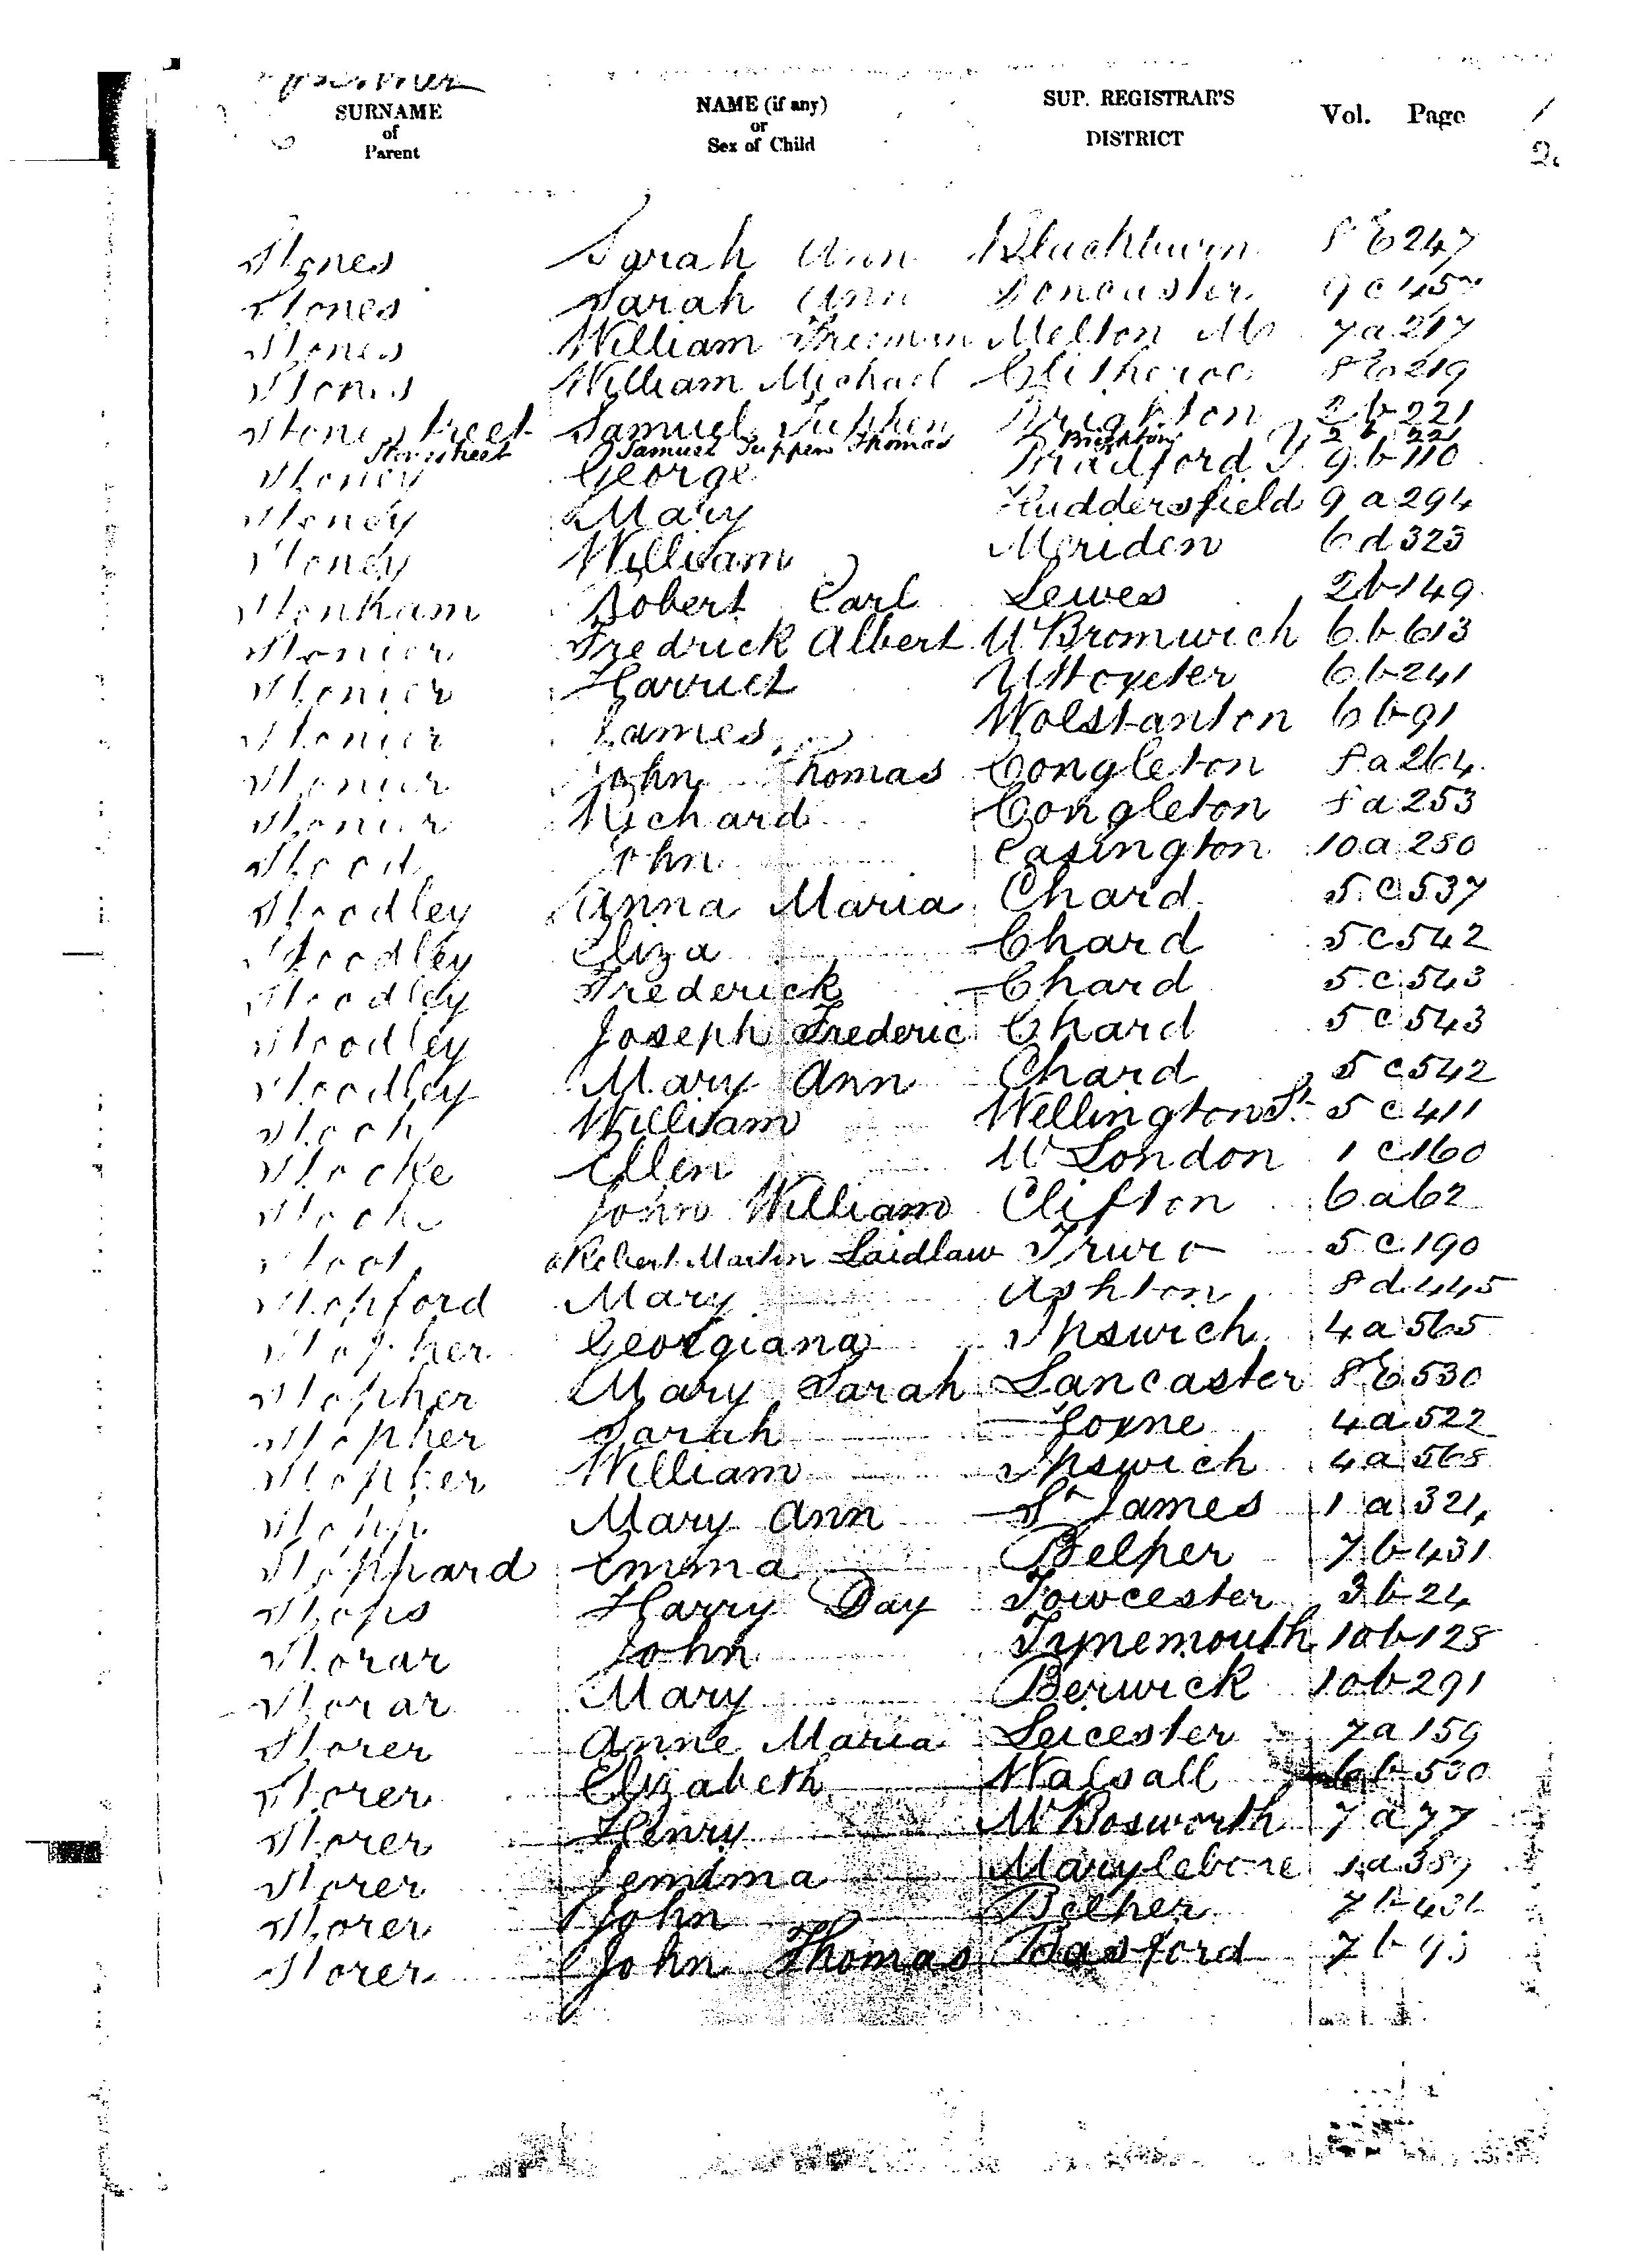 SURNAME of Parent NAME (if any) or Sex of Child SUP. REGISTRAR'S DISTRICT Vol. Page
Stones Sarah Ann Blackburn 8 E 247
Stones Sarah Ann Doncaster 9 c
Stones William Freeman Melton M 7 a 217
Stones William Michael Clitheroe 8 E 219
Stonestreet Samuel Tuppen Brighton 2 b 221
Stonestreet Samuel Tuppen Thomas Brighton 2 b 221
Stoney George Bradford Y. 9 b 110
Stoney Mary Huddersfield 9 a 294
Stoney William Meriden 6 d 323
Stonham Robert Carl Lewes 2 b 149
Stonier Fredrick Albert W Bromwich 6 b 613
Stonier Harriet Uttoxeter 6 b 241
Stonier James Wolstanton 6 b 91
Stonier John Thomas Congleton 8 a 264
Stonier Richard Congleton 8 a 253
Stood John Easington 10 a 280
Stoodley Anna Maria Chard 5 c 537
Stoodley Eliza Chard 5 c 542
Stoodley Frederick Chard 5 c 543
Stoodley Joseph Frederic Chard 5 c 543
Stoodley Mary Ann Chard 5 c 542
William Wellington St. 5 c 411
Ellen W London 1 c 160
John William Clifton 6 a 62
Robert Martin Laidlaw Truro 5 c 190
Stopford Mary Ashton 8 d 445
Stopher Georgiana Ipswich 4 a 565
Stopher Mary Sarah Lancaster 8 E 530
Stopher Sarah Hoxne 4 a 522
Stopher William Ipswich 4 a 568
Stopp Mary Ann St James 1 a 321
Stoppard Emma Belper 7 b 431
Stops Harry Day Towcester 3 b 24
Storar John Tynemouth 10 b 128
Storar Mary Berwick 10 b 291
Storer Anne Maria Leicester 7 a 159
Storer Elizabeth Walsall 6 b 530
Storer Henry M Bosworth 7 a 77
Storer Jemima Marylebone 1 a 389
Storer John Belper 7 b 431
Storer John Thomas Basford 7 b